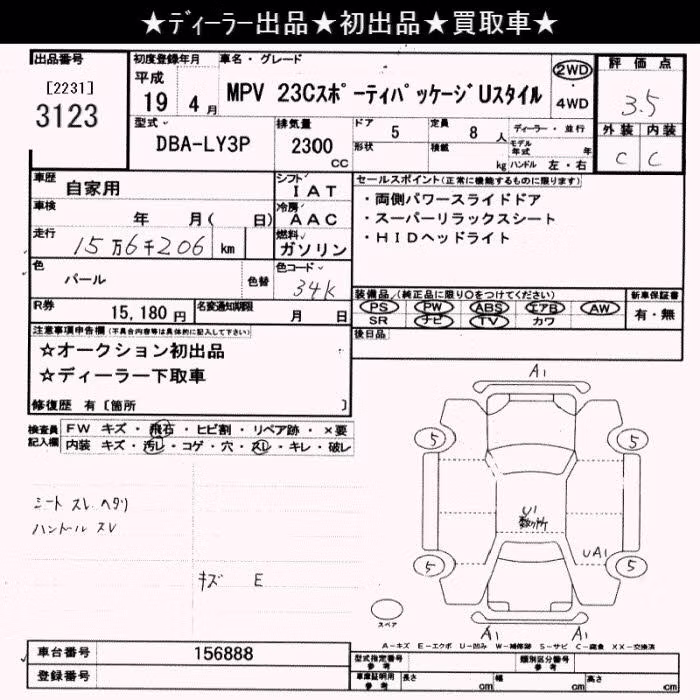 ★ディーラー出品★初出品★買取車★
出品番号
[2231]
3123
初度登録年月
平成
19年4月
車名・グレード
MPV 23Cスポーティパッケージ Uスタイル
2WD
・
4WD
評価点
3.5
外装 内装
C C
型式
DBA-LY3P
排気量
2300
CC
ドア 5
形状
定員 8人
積載 kg
ディーラー・並行
モデル年式 年
ハンドル 左・右
車歴 自家用
シフト
IAT
車検 年 月( 日)
冷房
AAC
走行 15万6千206 km
燃料
ガソリン
色 パール
色替
色コード
34K
R券 15,180円
名変通知期限 月 日
セールスポイント(正常に機能するものに限ります)
・両側パワースライドドア
・スーパーリラックスシート
・HIDヘッドライト
装備品(純正品に限り○をつけてください)
PS PW ABS エアB AW
SR ナビ TV カワ
新車保証書
有・無
後日品
注意事項申告欄(不具合内容等は具体的に記入して下さい)
☆オークション初出品
☆ディーラー下取車
修復歴 有〔箇所 〕
検査員記入欄
FW キズ・飛石・ヒビ割・リペア跡・×要
内装 キズ・汚レ・コゲ・穴・スレ・キレ・破レ
シート スレ ヘタリ
ハンドル スレ
キズ E
A1
5
5
U1
数ヶ所
UA1
5
5
A1
A1
スペア
A-キズ E-エクボ U-凹み W-補修跡 S-サビ C-腐食 XX-交換済
車台番号 156888
登録番号
型式指定番号
参考
類別区分番号
参考
車庫証明用
参考
長さ cm
幅 cm
高さ cm